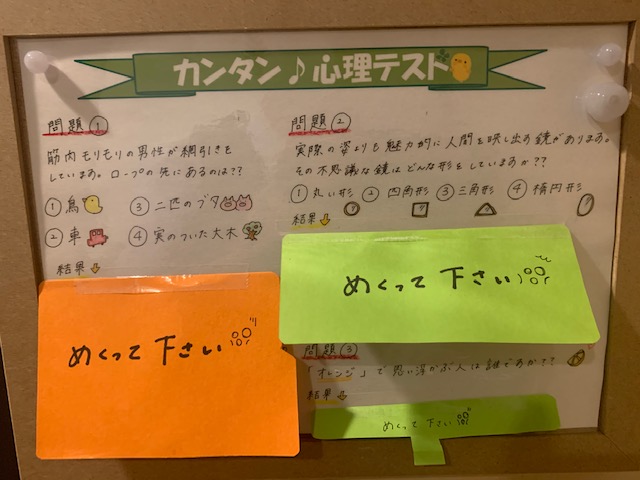 カンタン♪心理テスト
問題①
筋肉モリモリの男性が綱引きを
しています。ロープの先にあるのは??
①鳥 ③二匹のブタ
②車 ④実のついた大木
結果↓
めくって下さい
問題②
実際の姿よりも魅力的に人間を映し出す鏡があります。
その不思議な鏡はどんな形をしているか??
①丸い形 ②四角形 ③三角形 ④楕円形
結果↓
めくって下さい
問題③
「オレンジ」で思い浮かぶ人は誰ですか??
結果↓
めくって下さい